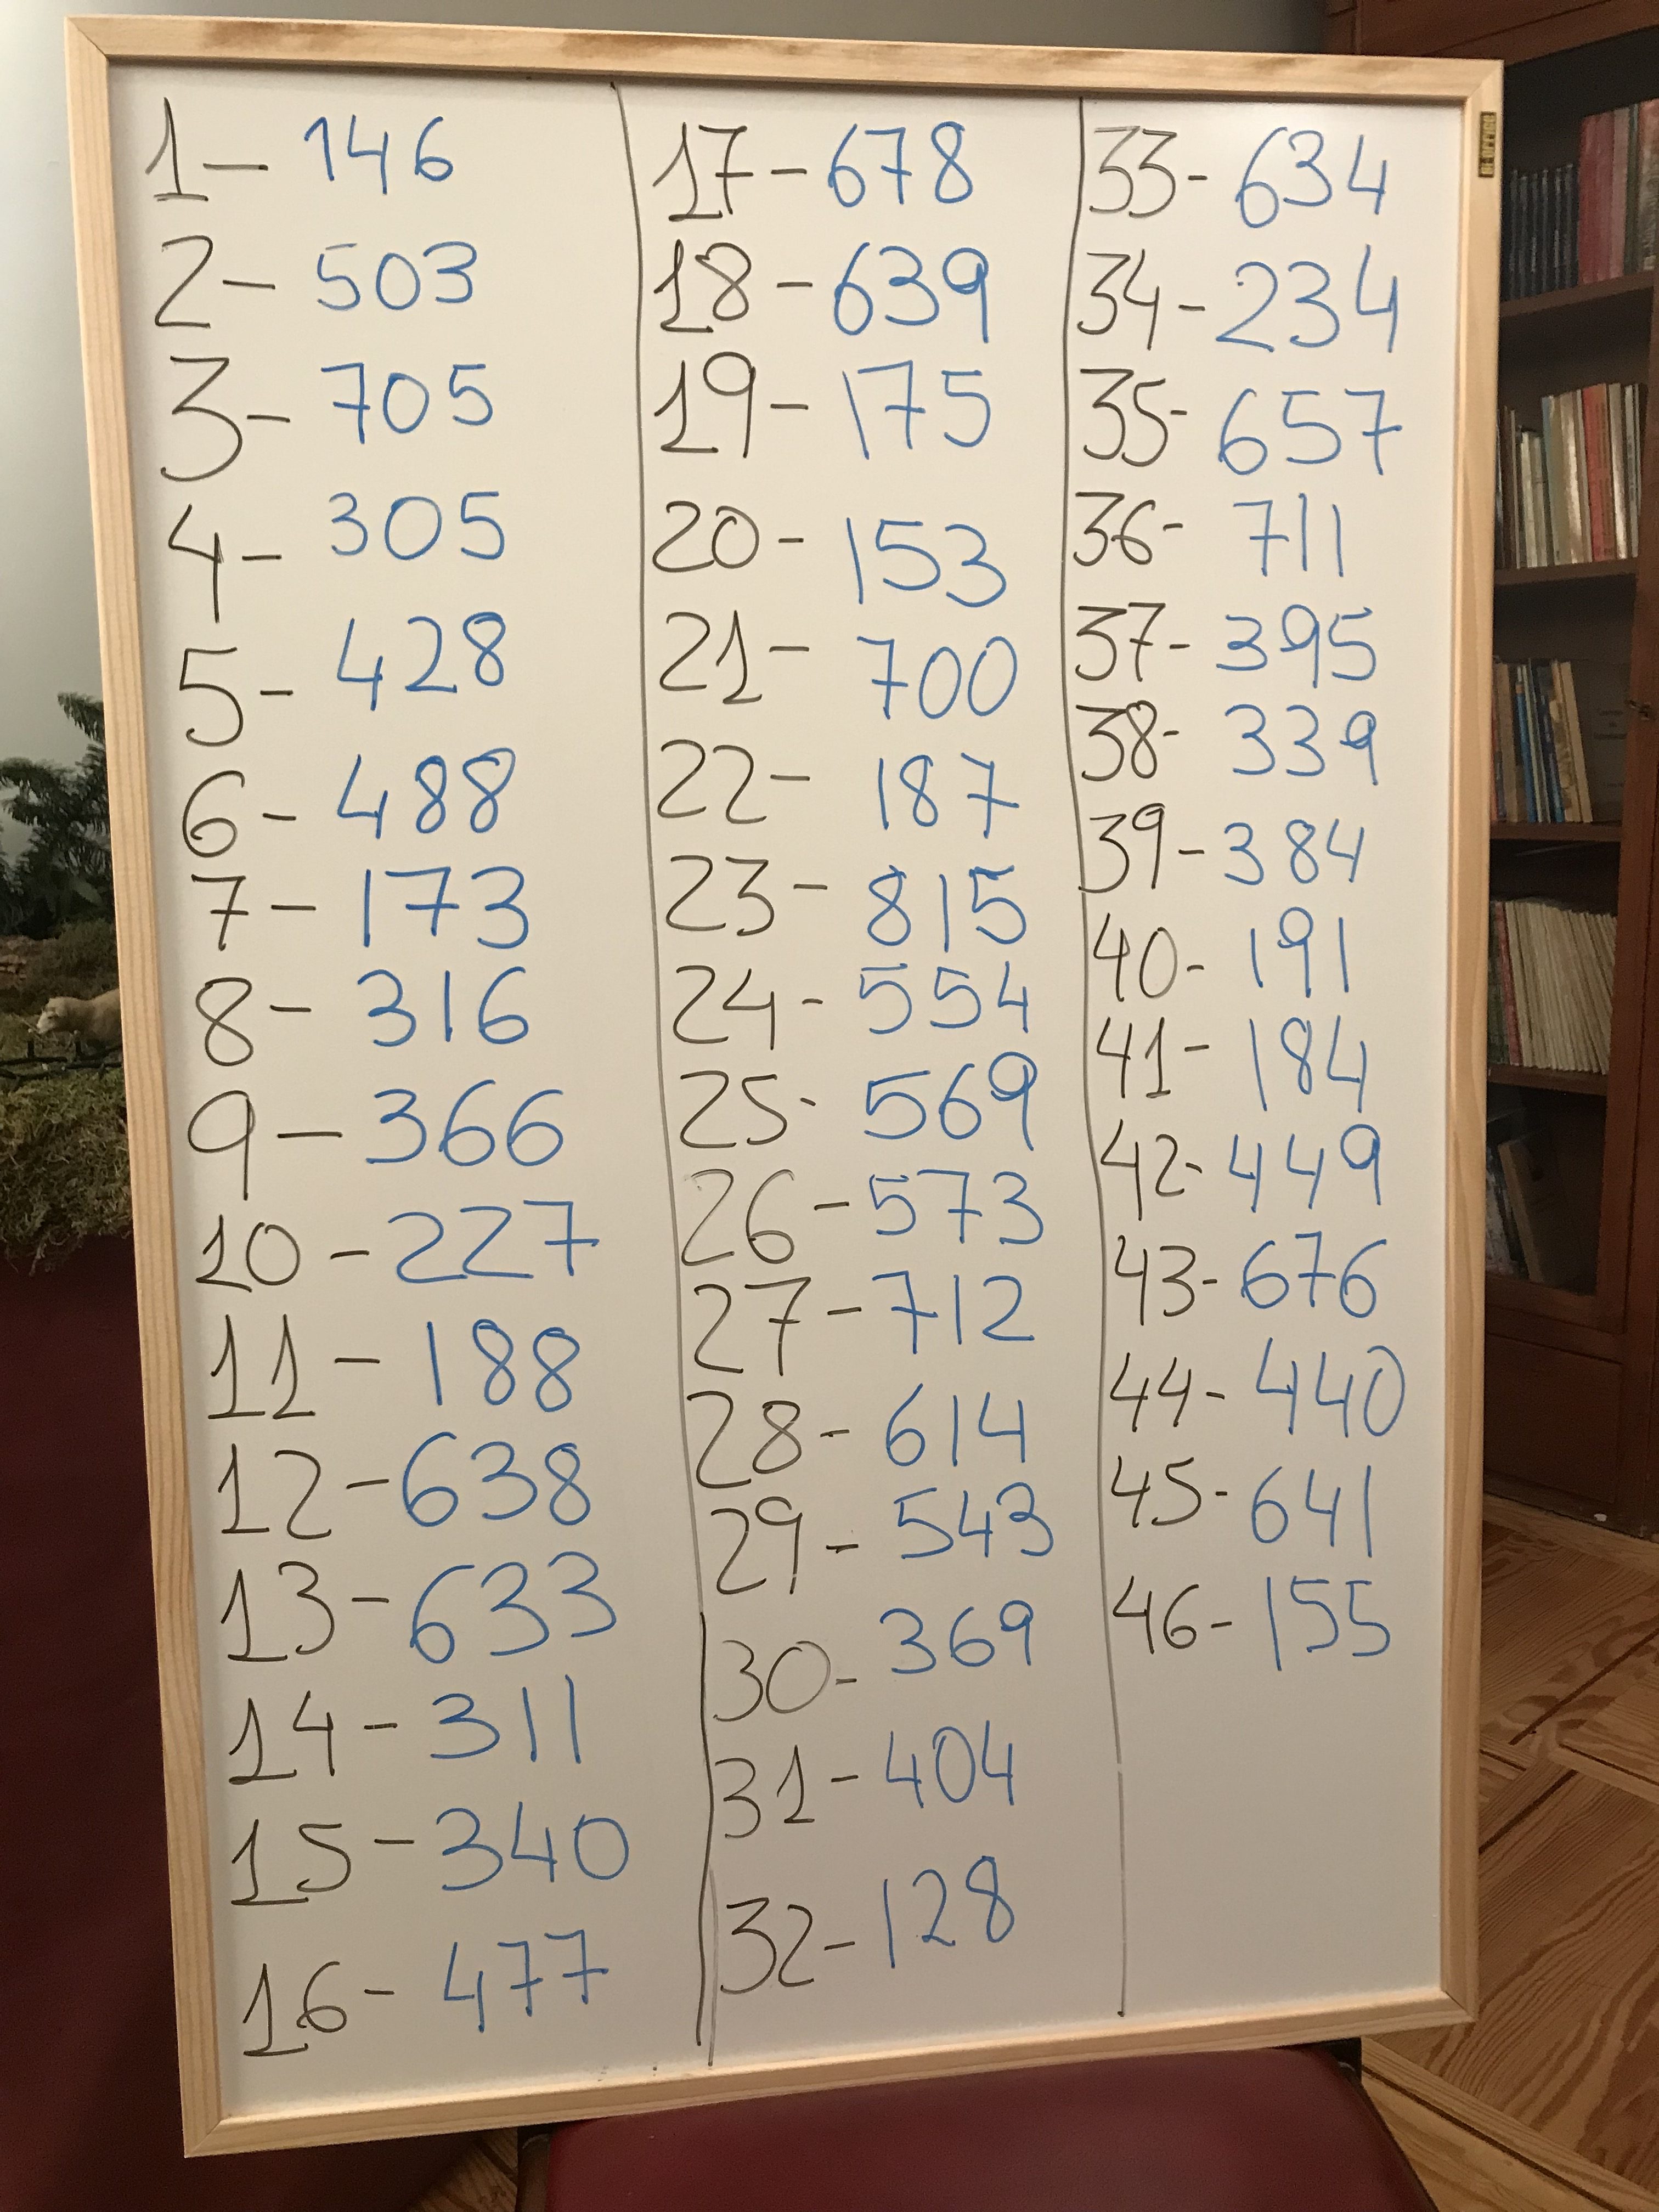 1- 146
2- 503
3- 705
4- 305
5- 428
6- 488
7- 173
8- 316
9- 366
10- 227
11- 188
12- 638
13- 633
14- 311
15- 340
16- 477
17- 678
18- 639
19- 175
20- 153
21- 700
22- 187
23- 815
24- 554
25- 569
26- 573
27- 712
28- 614
29- 543
30- 369
31- 404
32- 128
33- 634
34- 234
35- 657
36- 711
37- 395
38- 339
39- 384
40- 191
41- 184
42- 449
43- 676
44- 440
45- 641
46- 155